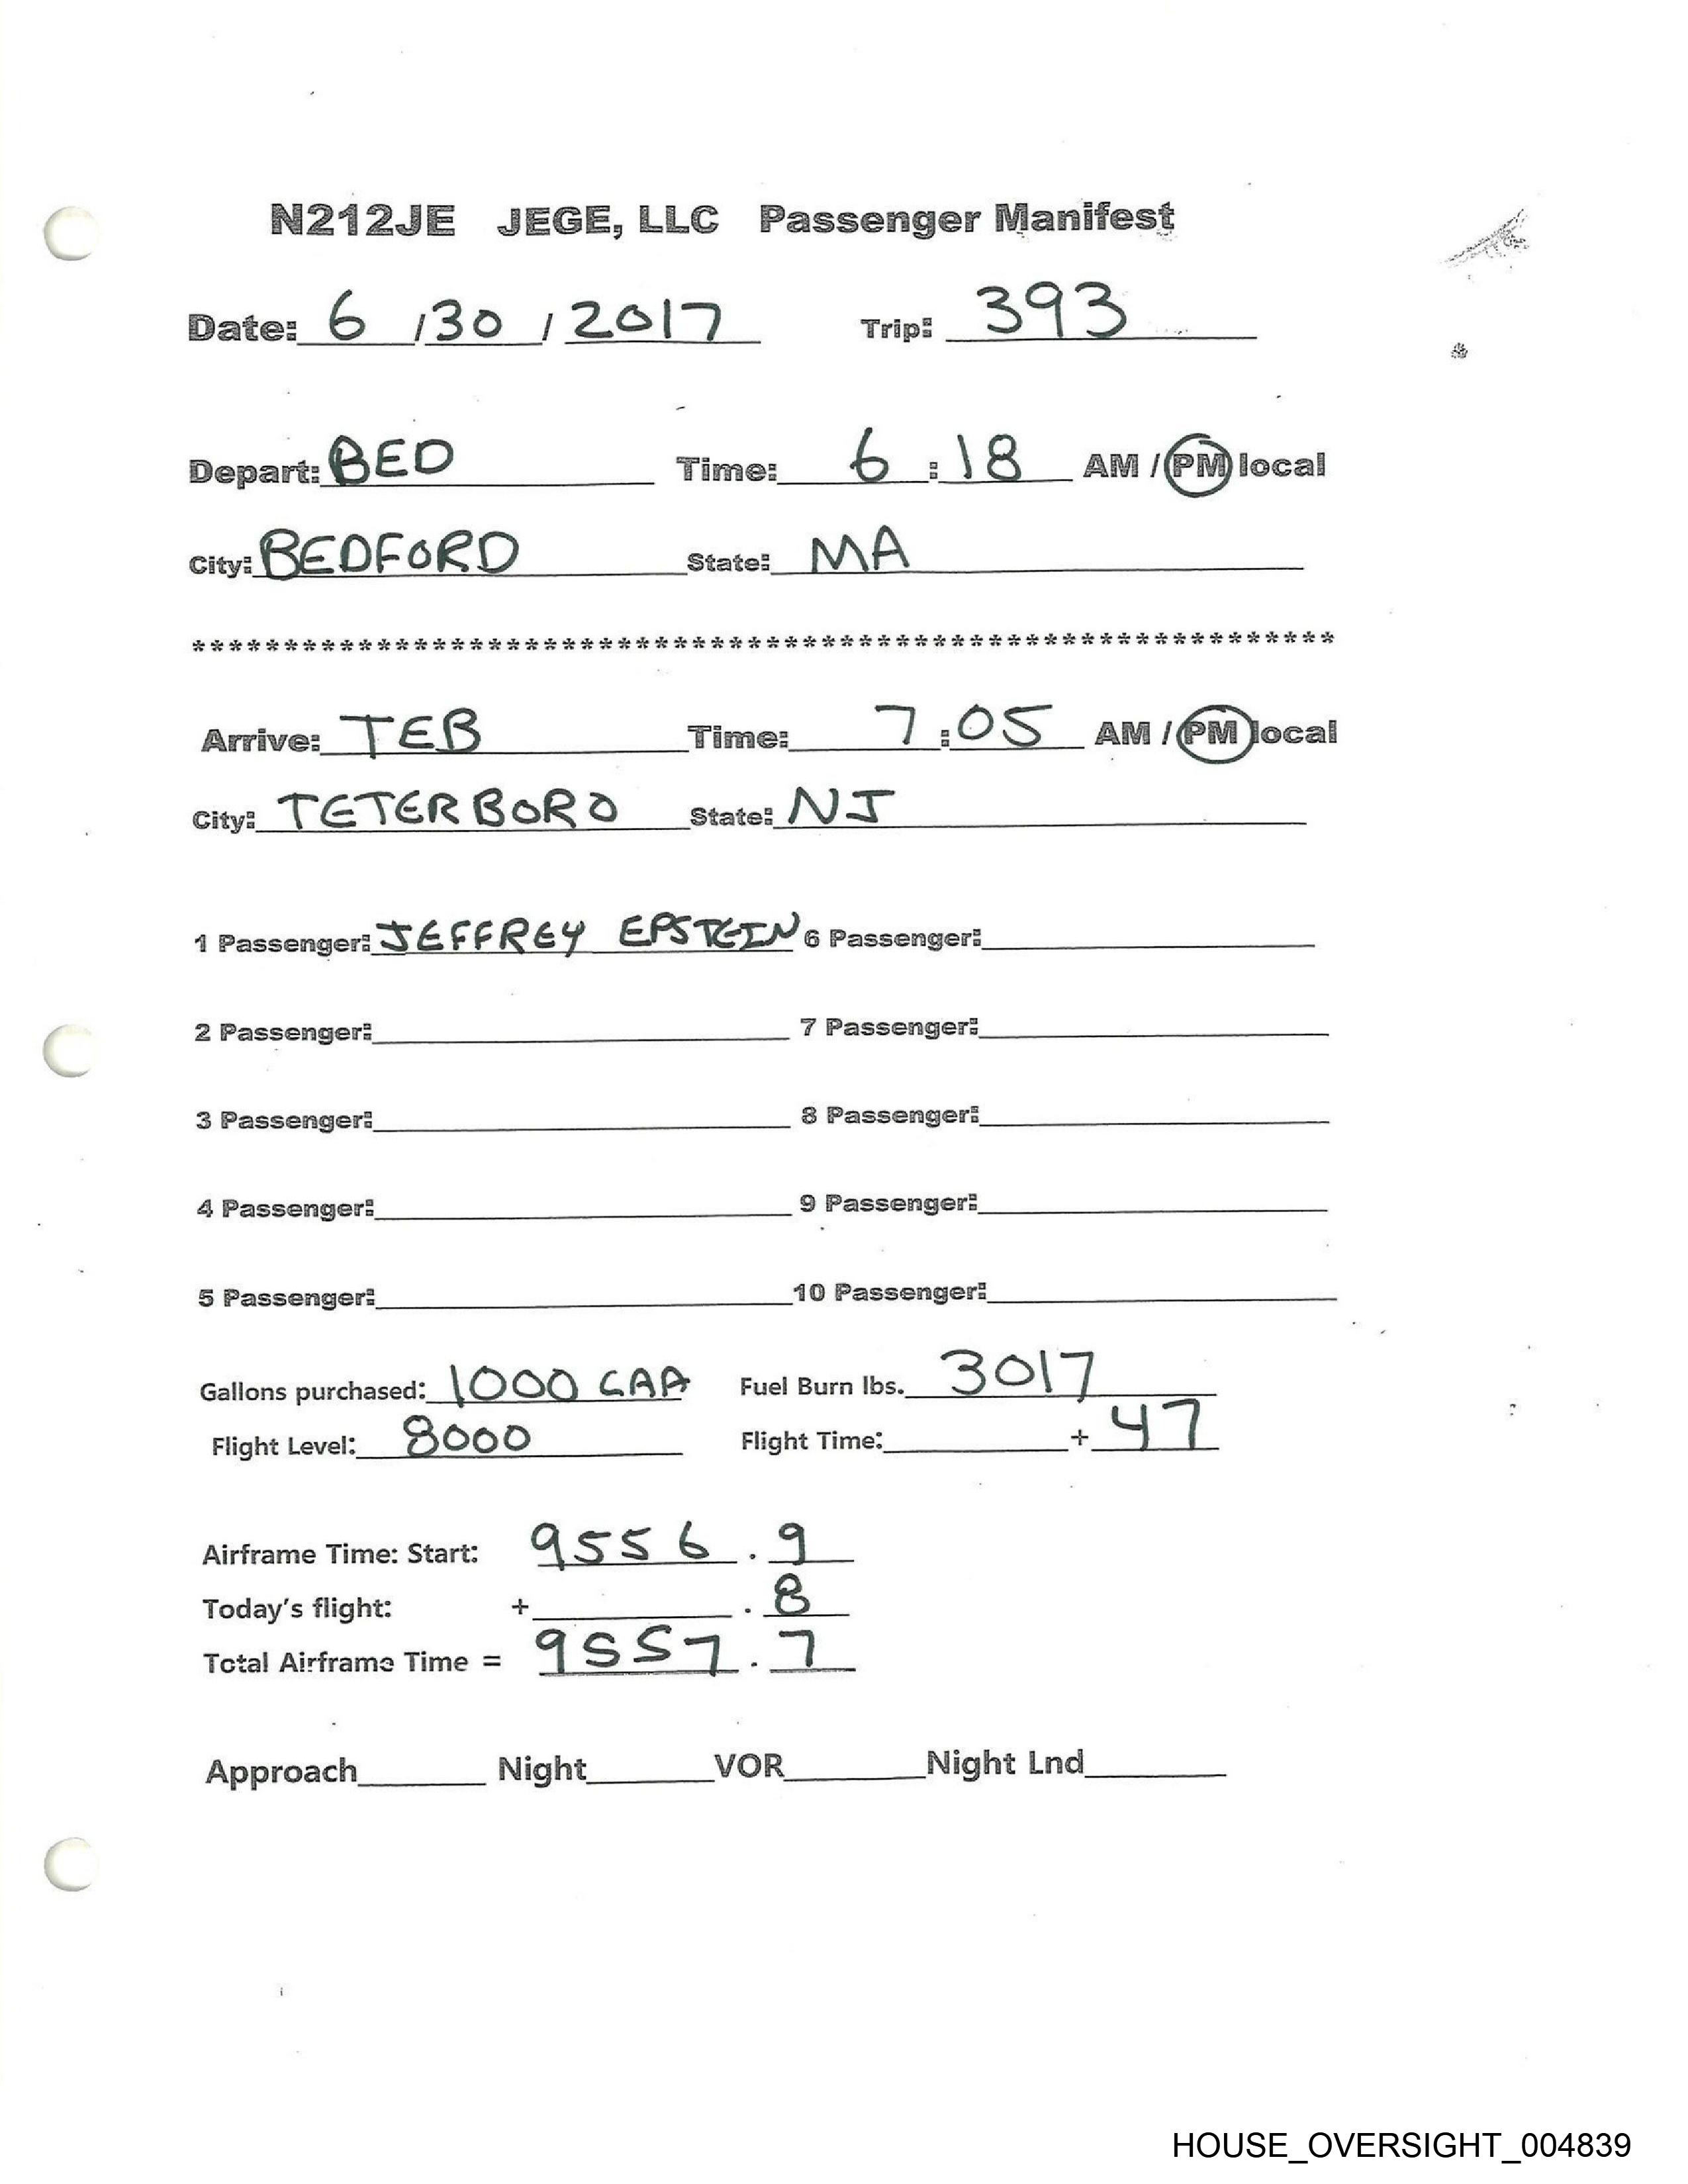 N212JE JEGE, LLC Passenger Manifest
Date: 6 / 30 / 2017 Trip: 393
Depart: BED Time: 6 : 18 AM / PM local
City: BEDFORD State: MA
****************************************************************
Arrive: TEB Time: 7 : 05 AM / PM local
City: TETERBORO State: NJ
1 Passenger: JEFFREY EPSTEIN 6 Passenger:
2 Passenger: 7 Passenger:
3 Passenger: 8 Passenger:
4 Passenger: 9 Passenger:
5 Passenger: 10 Passenger:
Gallons purchased: 1000 CAA Fuel Burn lbs. 3017
Flight Level: 8000 Flight Time: + 47
Airframe Time: Start: 9556 . 9
Today's flight: + . 8
Total Airframe Time = 9557 . 7
Approach Night VOR Night Lnd
HOUSE_OVERSIGHT_004839